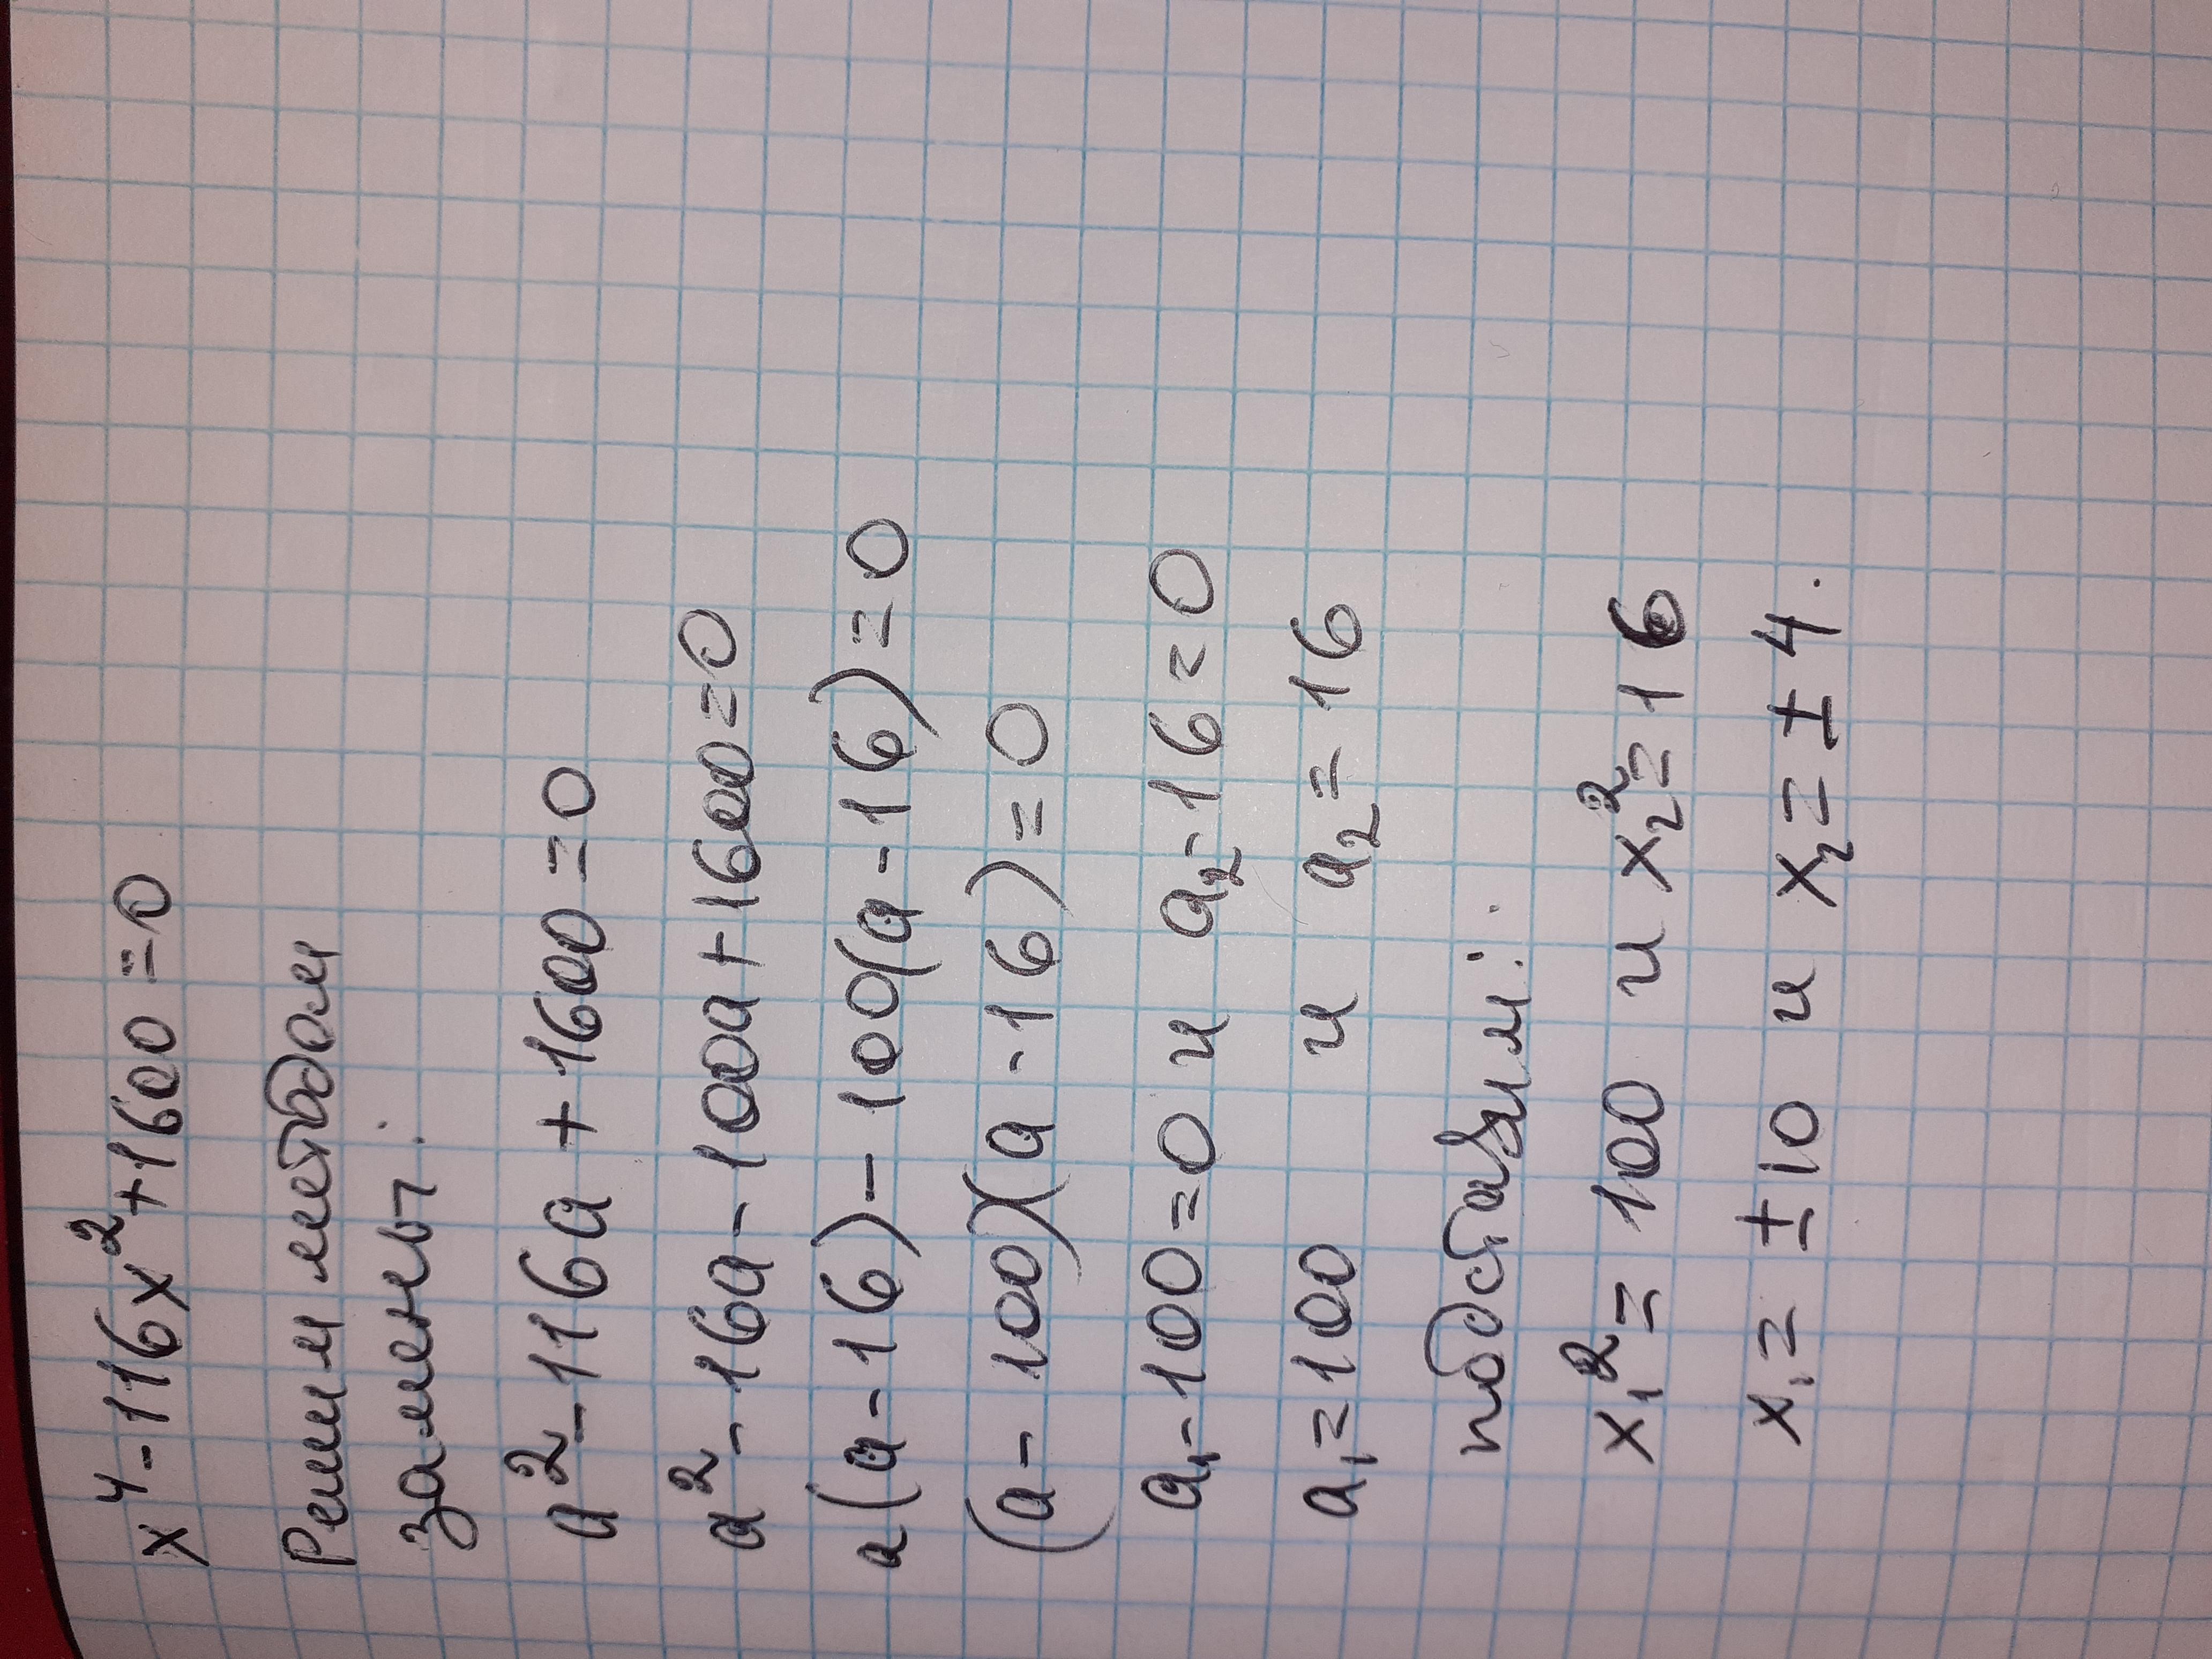 x⁴-116x²+1600=0
Решим методом
замены:
a²-116a+1600=0
a²-16a-100a+1600=0
a(a-16)-100(a-16)=0
(a-100)(a-16)=0
a₁-100=0 и a₂-16=0
a₁=100 и a₂=16
подставим:
x₁²=100 и x₂²=16
x₁=±10 и x₂=±4.